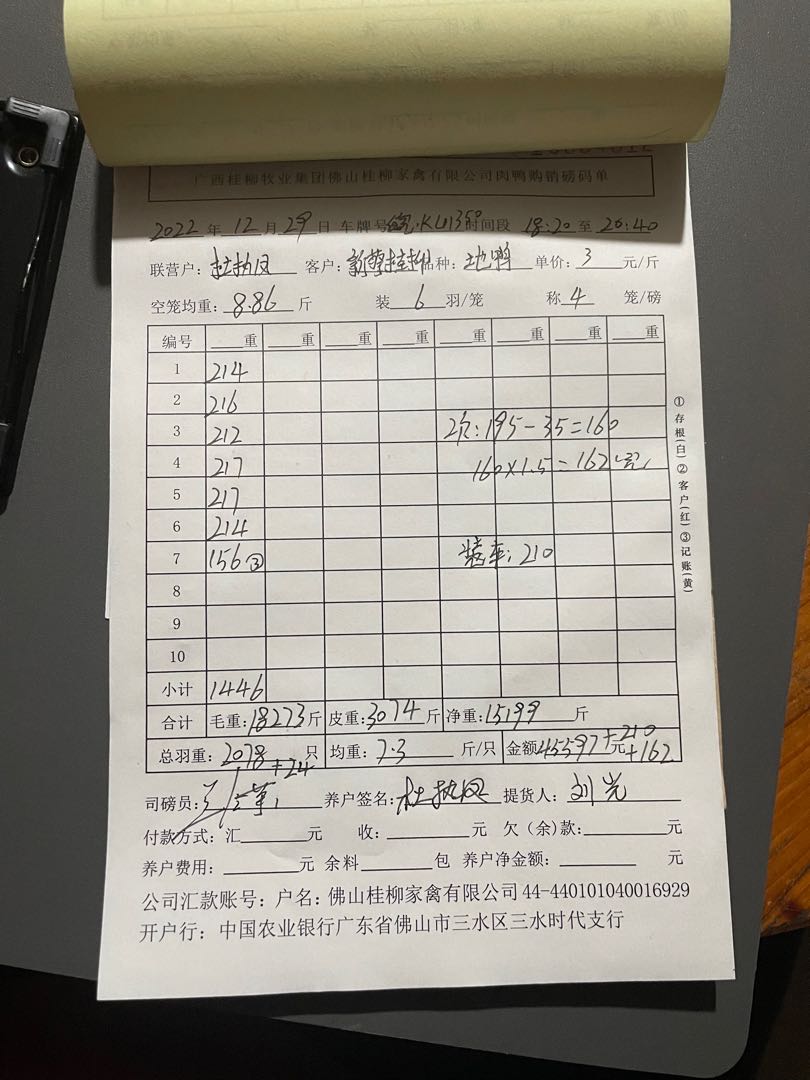 广西桂柳牧业集团佛山桂柳家禽有限公司肉鸭购销磅码单
2022 年 12 月 29 日 车牌号 KU135 时间段 18:20 至 20:40
联营户: 杜执凤 客户: 品种: 地鸭 单价: 3 元/斤
空笼均重: 8.86 斤 装 6 羽/笼 称 4 笼/磅
编号 重 重 重 重 重 重 重 重
1 214
2 216
3 212 次:195-35=160
4 217 160×1.5=162
5 217
6 214
7 156 ③ 装车:210
8
9
10
小计 1446
合计 毛重:18273斤 皮重:3074斤 净重:15199斤
总羽重: 2078只 +24 均重: 7.3 斤/只 金额45597元+210+162
司磅员: 养户签名: 杜执凤 提货人: 刘光
付款方式: 汇 元 收: 元 欠(余)款: 元
养户费用: 元 余料 包 养户净金额: 元
公司汇款账号: 户名: 佛山桂柳家禽有限公司 44-440101040016929
开户行: 中国农业银行广东省佛山市三水区三水时代支行
①存根(白)②客户(红)③记账(黄)